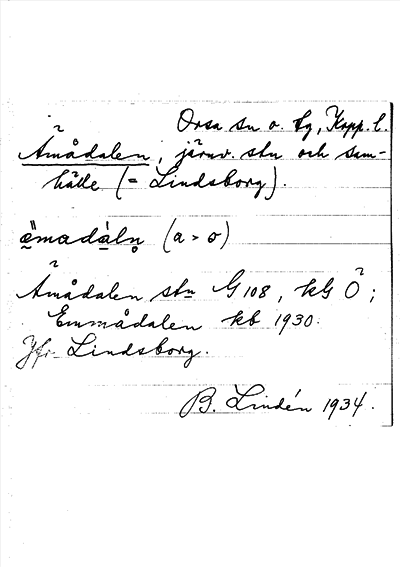 Orsa sn o. tg, Kopp. l.
Åmådalen, järnv. stn och sam-
hälle (= Lindsborg).
ämadàln̥ (a > o)
Åmådalen stn G 108, kG Ö ;
Emmådalen kb 1930.
Jfr Lindsborg.
B. Lindén 1934.